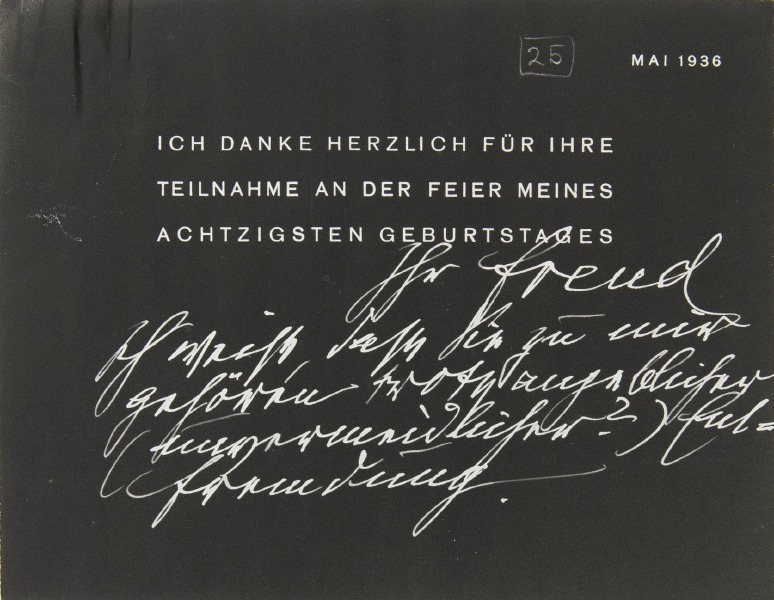 25
MAI 1936
ICH DANKE HERZLICH FÜR IHRE
TEILNAHME AN DER FEIER MEINES
ACHTZIGSTEN GEBURTSTAGES
Ihr Freud
Ich weiß, daß Sie zu mir
gehören trotz angeblicher
(unvermeidlicher?) Ent=
fremdung.